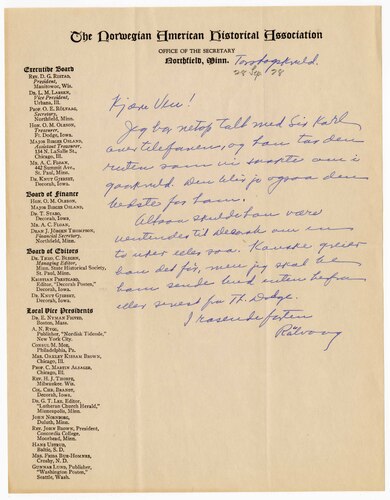 The Norwegian American Historical Association
OFFICE OF THE SECRETARY
Northfield, Minn.
Torsdagskveld.
28 Sep. '28
Executive Board
REV. D. G. RISTAD,
President,
Manitowoc, Wis.
DR. L. M. LARSEN,
Vice President,
Urbana, Ill.
PROF. O. E. RÖLVAAG,
Secretary,
Northfield, Minn.
HON. O. M. OLESON,
Treasurer,
Ft. Dodge, Iowa.
MAJOR BIRGER OSLAND,
Assistant Treasurer,
134 N. LaSalle St.,
Chicago, Ill.
MR. A. C. FLOAN,
442 Summit Ave.,
St. Paul, Minn.
DR. KNUT GJERSET,
Decorah, Iowa.
Board of Finance
HON. O. M. OLESON,
MAJOR BIRGER OSLAND,
DR. T. STABO,
Decorah, Iowa.
MR. A. C. FLOAN,
DEAN J. JÖRGEN THOMPSON,
Financial Secretary,
Northfield, Minn.
Board of Editors
DR. THEO. C. BLEGEN,
Managing Editor,
Minn. State Historical Society,
St. Paul, Minn.
KRISTIAN PRESTGARD,
Editor, "Decorah Posten,"
Decorah, Iowa.
DR. KNUT GJERSET,
Decorah, Iowa.
Local Vice Presidents
DR. E. NYMAN FIGVED,
Boston, Mass.
A. N. RYGG,
Publisher, "Nordisk Tidende,"
New York City.
CONSUL M. MOE,
Philadelphia, Pa.
MRS. OAKLEY KISSAM BROWN,
Chicago, Ill.
PROF. C. MARTIN ALSAGER,
Chicago, Ill.
REV. H. J. THORPE,
Milwaukee, Wis.
COL. CHR. BRANDT,
Decorah, Iowa.
DR. G. T. LEE, Editor,
"Lutheran Church Herald,"
Minneapolis, Minn.
JOHN NORNBORG,
Duluth, Minn.
REV. JOHN BROWN, President,
Concordia College,
Moorhead, Minn.
HANS USTRUD,
Baltic, S. D.
MRS. FRIDA BUE-HOMNES,
Crosby, N. D.
GUNNAR LUND, Publisher,
"Washington Posten,"
Seattle, Wash.
Kjære Ven!
Jeg har netop talt med Sis Karl
over telefonen, og han tar den
ruten som vi snakte om i
gaarkveld. Den blir jo ogsaa den
bedste for ham.
Altsaa skulde han være
ventendes til Decorah om en
to uker eller saa. Kanske greier
han det før, men jeg skal be
ham sende bud enten herfra
eller senest fra Ft. Dodge.
I rasende farten
Rölvaag